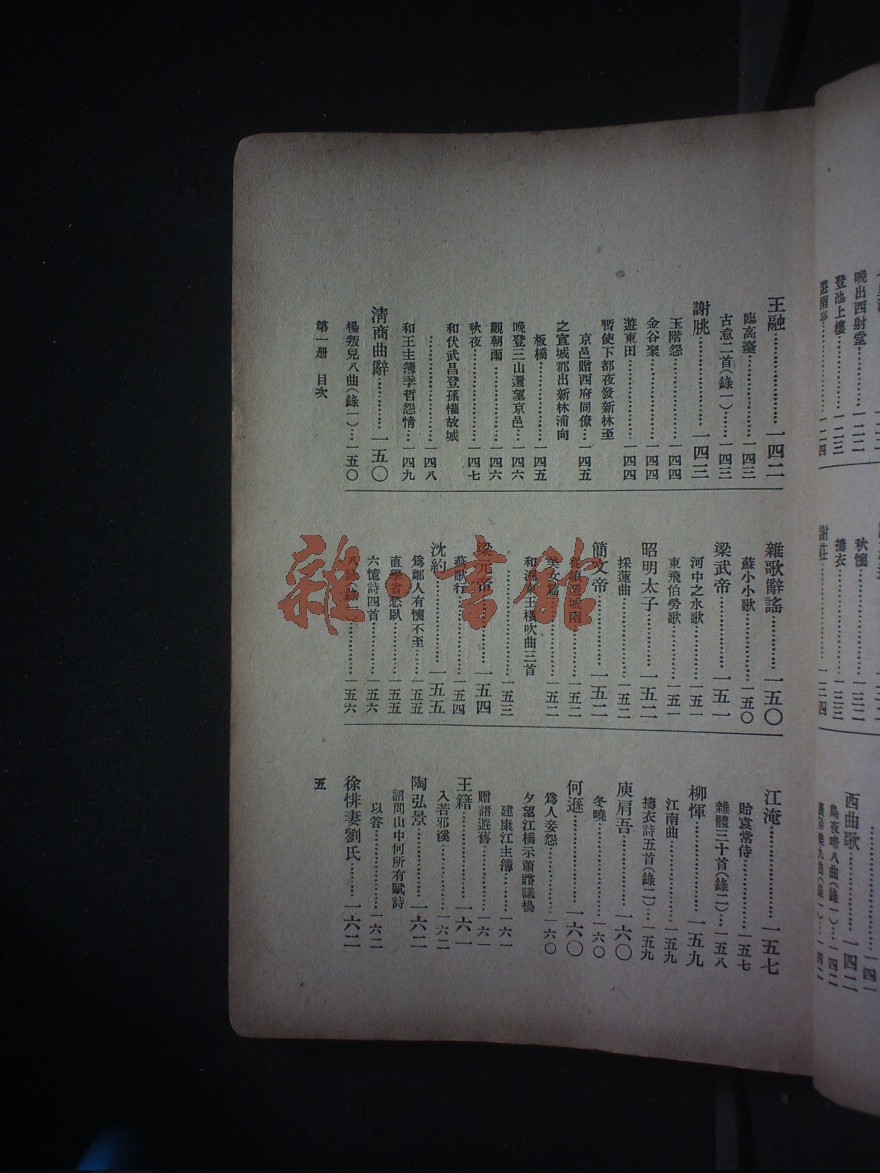 王融……一四二
臨高臺……一四三
古意二首(錄一)…一四三
謝朓……一四三
玉階怨……一四四
金谷聚……一四四
遊東田……一四四
暫使下都夜發新林至
京邑贈西府同僚…一四五
之宣城郡出新林浦向
板橋……一四五
晚登三山還望京邑…一四六
觀朝雨……一四六
秋夜……一四七
和伏武昌登孫權故城
……一四八
和王主簿季哲怨情…一四九
清商曲辭……一五〇
楊叛兒八曲(錄一)…一五〇
雜歌辭謠……一五〇
蘇小小歌……一五〇
梁武帝……一五一
河中之水歌……一五一
東飛伯勞歌……一五一
昭明太子……一五二
採蓮曲……一五二
簡文帝……一五二
城南……一五二
美女篇……一五二
和湘東王橫吹曲三首
……一五三
梁元帝……一五四
燕歌行……一五四
沈約……一五五
為鄰人有懷不至……一五五
直學省愁臥……一五五
六憶詩四首……一五六
一五六
江淹……一五七
貽袁常侍……一五七
雜體三十首(錄二)…一五八
柳惲……一五九
江南曲……一五九
擣衣詩五首(錄二)…一五九
庾肩吾……一六〇
冬曉……一六〇
何遜……一六〇
為人妾怨……一六〇
夕望江橋示蕭諮議楊
建康江主簿……一六一
贈諸遊舊……一六一
王籍……一六一
入若邪溪……一六二
陶弘景……一六二
詔問山中何所有賦詩
以答……一六二
徐悱妻劉氏……一六二
第一冊 目次
五
晚出西射堂……一二二
登池上樓……一二三
遊南亭……一二四
秋懷……一三二
擣衣……一三三
謝莊……一三四
……一四一
西曲歌……一四二
烏夜啼八曲(錄一)…一四二
雜·書館